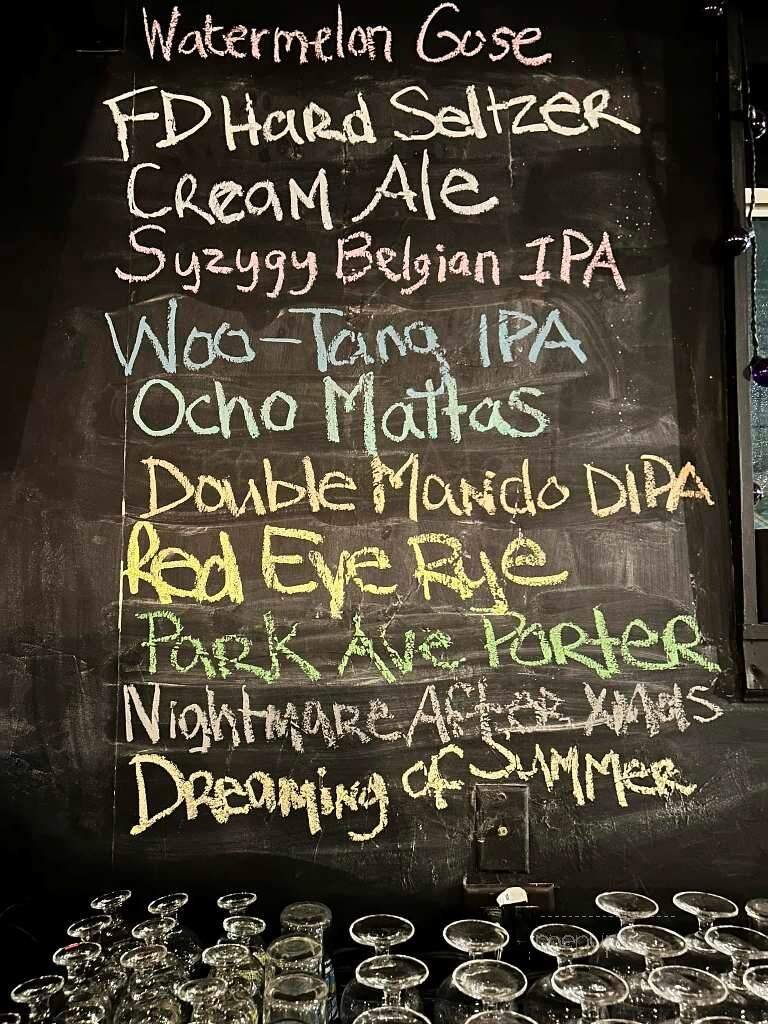 Watermelon Gose
FD Hard Seltzer
Cream Ale
Syzygy Belgian IPA
Woo-Tang IPA
Ocho Mattas
Double Mando DIPA
Red Eye Rye
Park Ave Porter
Nightmare After Xmas
Dreaming of Summer